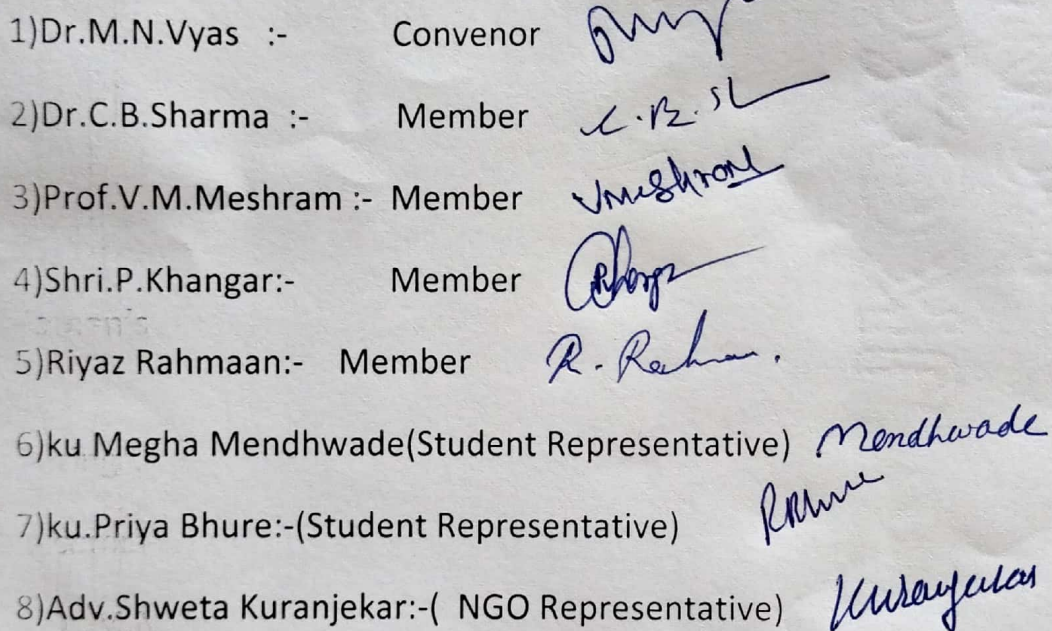 1)Dr.M.N.Vyas :- Convenor
2)Dr.C.B.Sharma :- Member C.B.
3)Prof.V.M.Meshram :- Member Vmeshram
4)Shri.P.Khangar:- Member
5)Riyaz Rahmaan:- Member R. Rahman.
6)ku Megha Mendhwade(Student Representative) Mendhwade
7)ku.Priya Bhure:-(Student Representative)
8)Adv.Shweta Kuranjekar:-( NGO Representative)